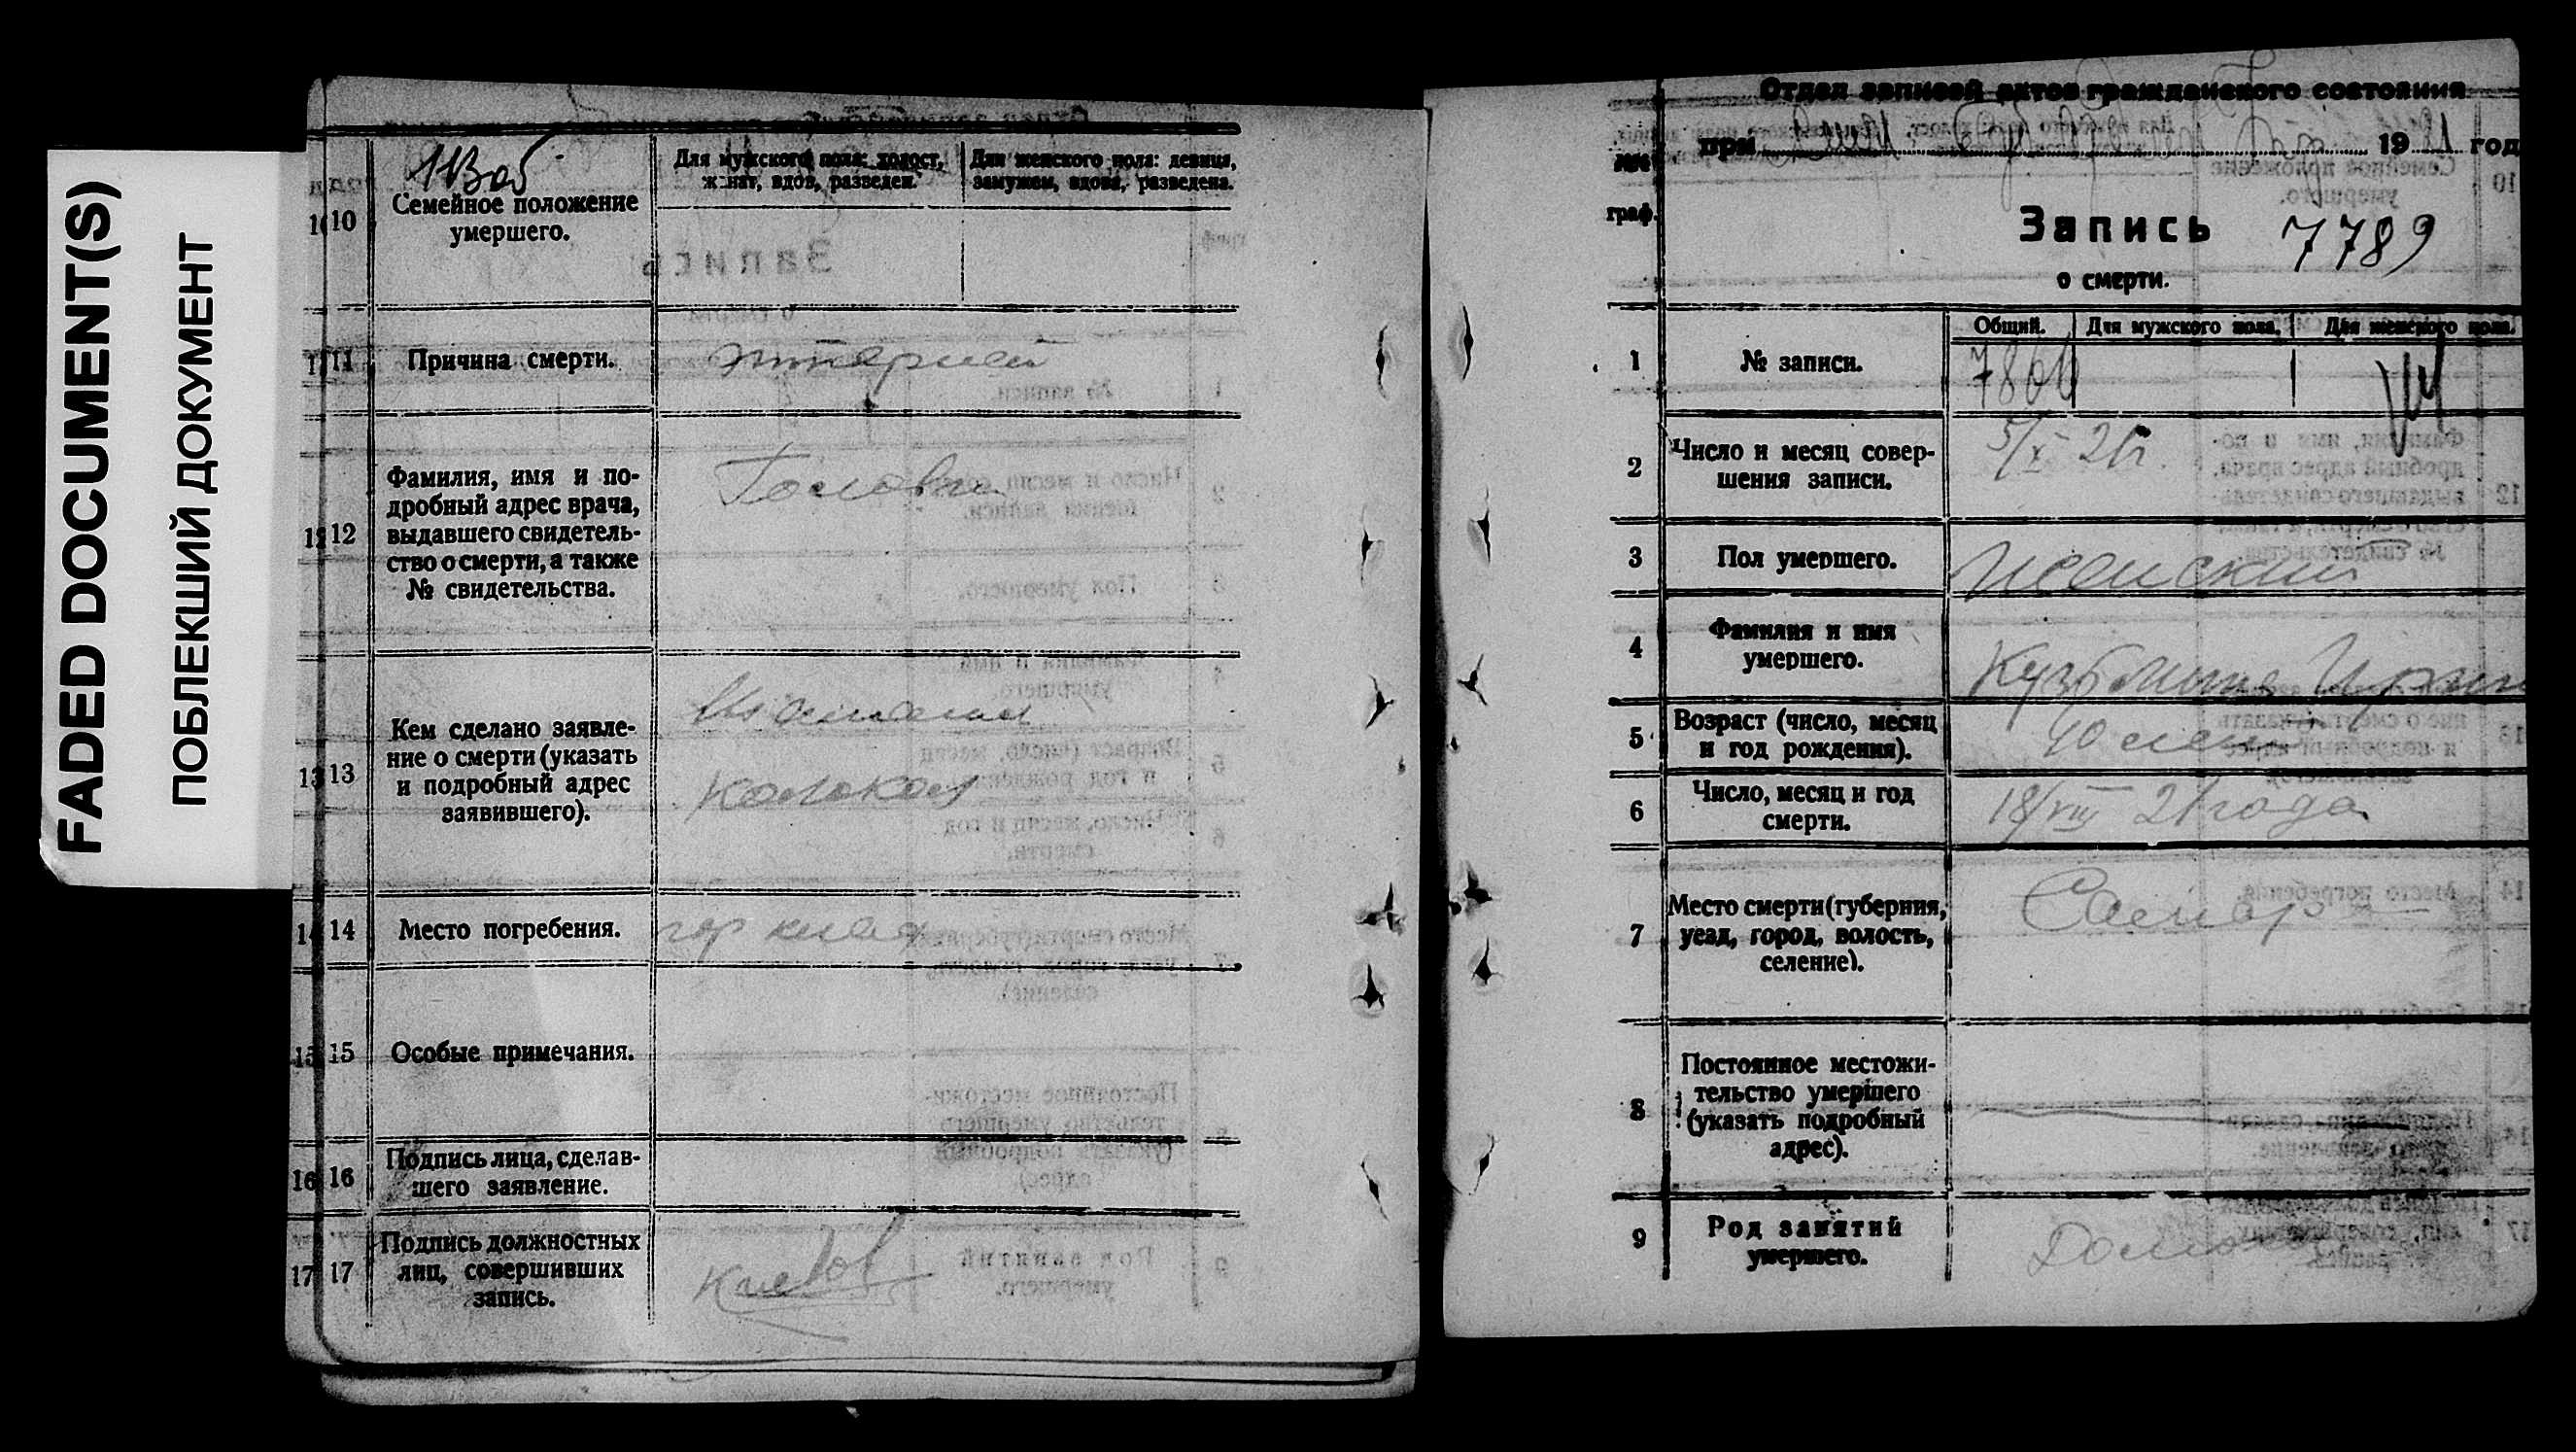 FADED DOCUMENT(S)
ПОБЛЕКШИЙ ДОКУМЕНТ
10 10
Семейное положение
умершего.
Для мужского пола: холост,
женат, вдов, разведен.
Для женского пола: девица,
замужем, вдова, разведена.
11 11
Причина смерти.
12 12
Фамилия, имя и по-
дробный адрес врача,
выдавшего свидетель-
ство о смерти, а также
№ свидетельства.
13 13
Кем сделано заявле-
ние о смерти (указать
и подробный адрес
заявившего).
14 14
Место погребения.
гор клад
15 15
Особые примечания.
16 16
Подпись лица, сделав-
шего заявление.
17 17
Подпись должностных
лиц, совершивших
запись.
Отдел записей актов гражданского состояния
при 1921 год
граф.
Запись 7789
о смерти.
1
№ записи.
Общий. Для мужского пола. Для женского пола.
2
Число и месяц совер-
шения записи.
5/X 21г.
3
Пол умершего.
Женский
4
Фамилия и имя
умершего.
Кузьмина Ирин
5
Возраст (число, месяц
и год рождения).
40 лет
6
Число, месяц и год
смерти.
18/VIII 21 года
7
Место смерти (губерния,
уезд, город, волость,
селение).
Самар
8
Постоянное местожи-
тельство умершего
(указать подробный
адрес).
9
Род занятий
умершего.